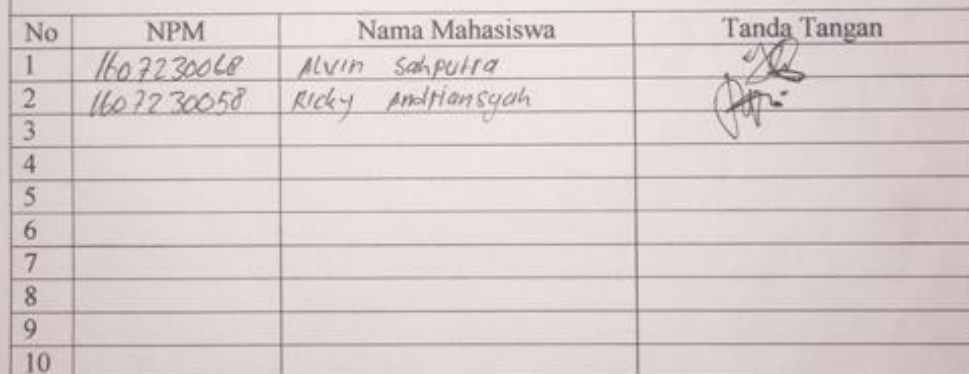 No NPM Nama Mahasiswa Tanda Tangan
1 1607230068 Alvin Sahputra
2 1607230058 Ricky Andriansyah
3
4
5
6
7
8
9
10